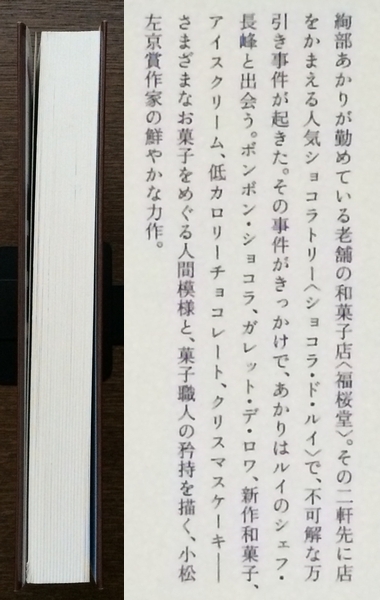 絢部あかりが勤めている老舗の和菓子店〈福桜堂〉。その二軒先に店
をかまえる人気ショコラトリー〈ショコラ・ド・ルイ〉で、不可解な万
引き事件が起きた。その事件がきっかけで、あかりはルイのシェフ・
長峰と出会う。ボンボン・ショコラ、ガレット・デ・ロワ、新作和菓子、
アイスクリーム、低カロリーチョコレート、クリスマスケーキ――
さまざまなお菓子をめぐる人間模様と、菓子職人の矜持を描く、小松
左京賞作家の鮮やかな力作。